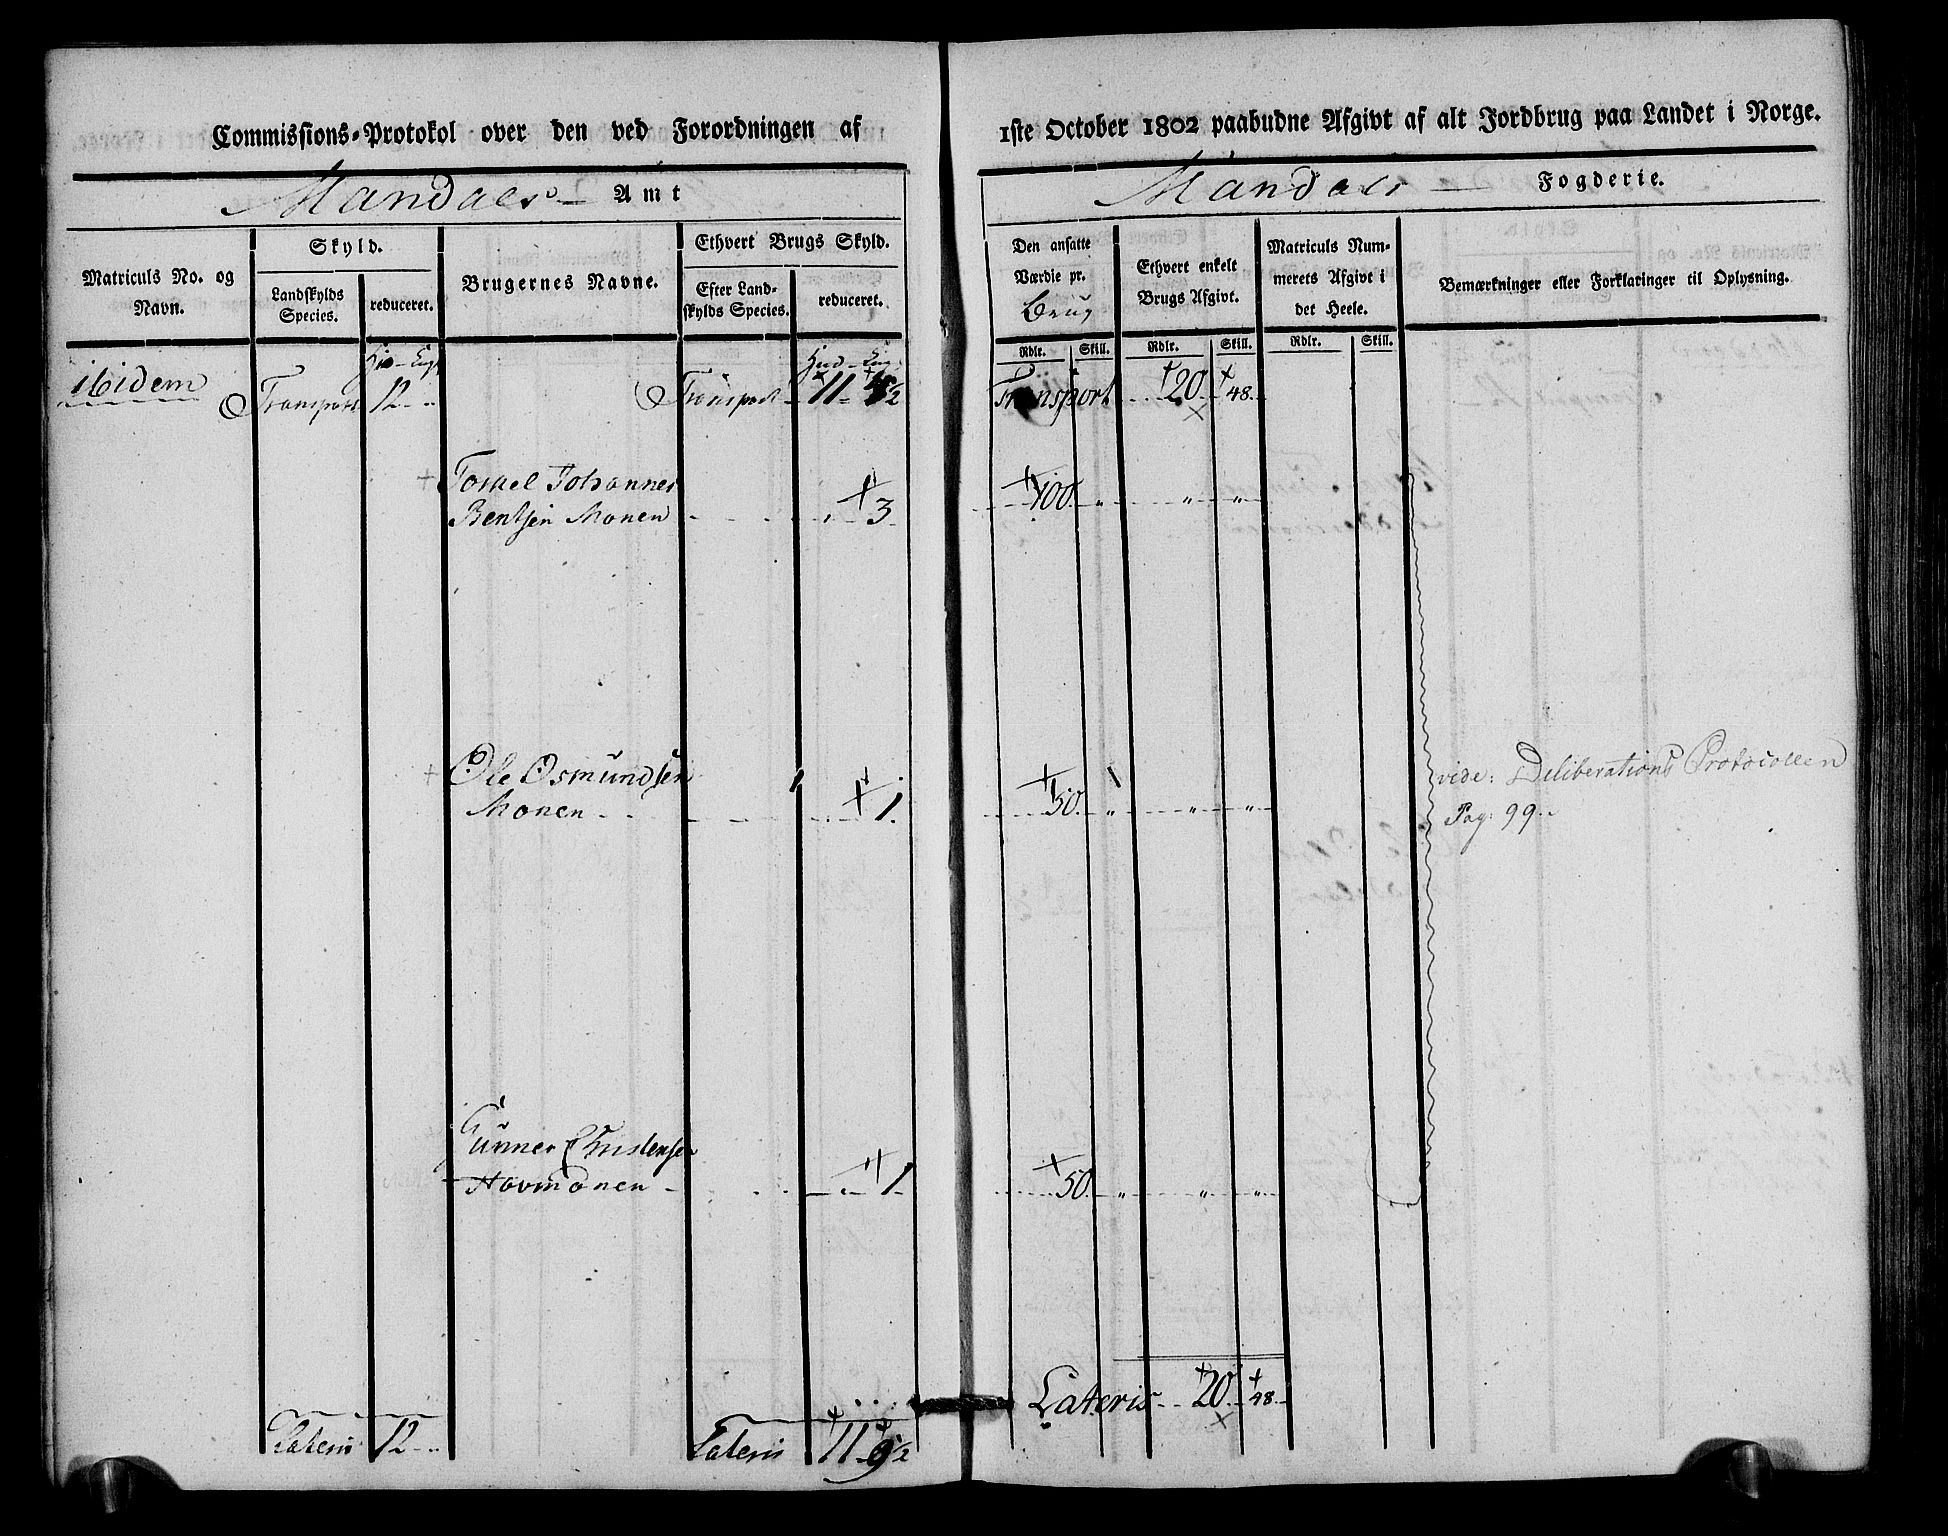 Commissions-Protokol over den ved Forordningen af 1ste October 1802 paabudne Afgivt af alt Jordbrug paa Landet i Norge.
Mandals Amt
Mandals Fogderie.
Matriculs No. og Navn.
Skyld.
Landskylds Species.
reduceret.
Brugernes Navne.
Ethvert Brugs Skyld.
Efter Landskylds Species.
reduceret.
Den ansatte Værdie pr. Brug
Rdlr. Skill.
Ethvert enkelt Brugs Afgivt.
Rdlr. Skill.
Matriculs Nummerets Afgivt i det Heele.
Rdlr. Skill.
Bemærkninger eller Forklaringer til Oplysning.
ibidem Transport 12 Transport 11 Transport 20 48
Johannes
Bentsen Monen 3 100 " " "
Ole Osmundsen
Monen 1 50 " " "
vide: Deliberations Protocollen
Pag: 99
Gunner Christensen
Hovmonen 1 50 " " "
Lateris 20 48
Lateris 12 Lateris 11 9½